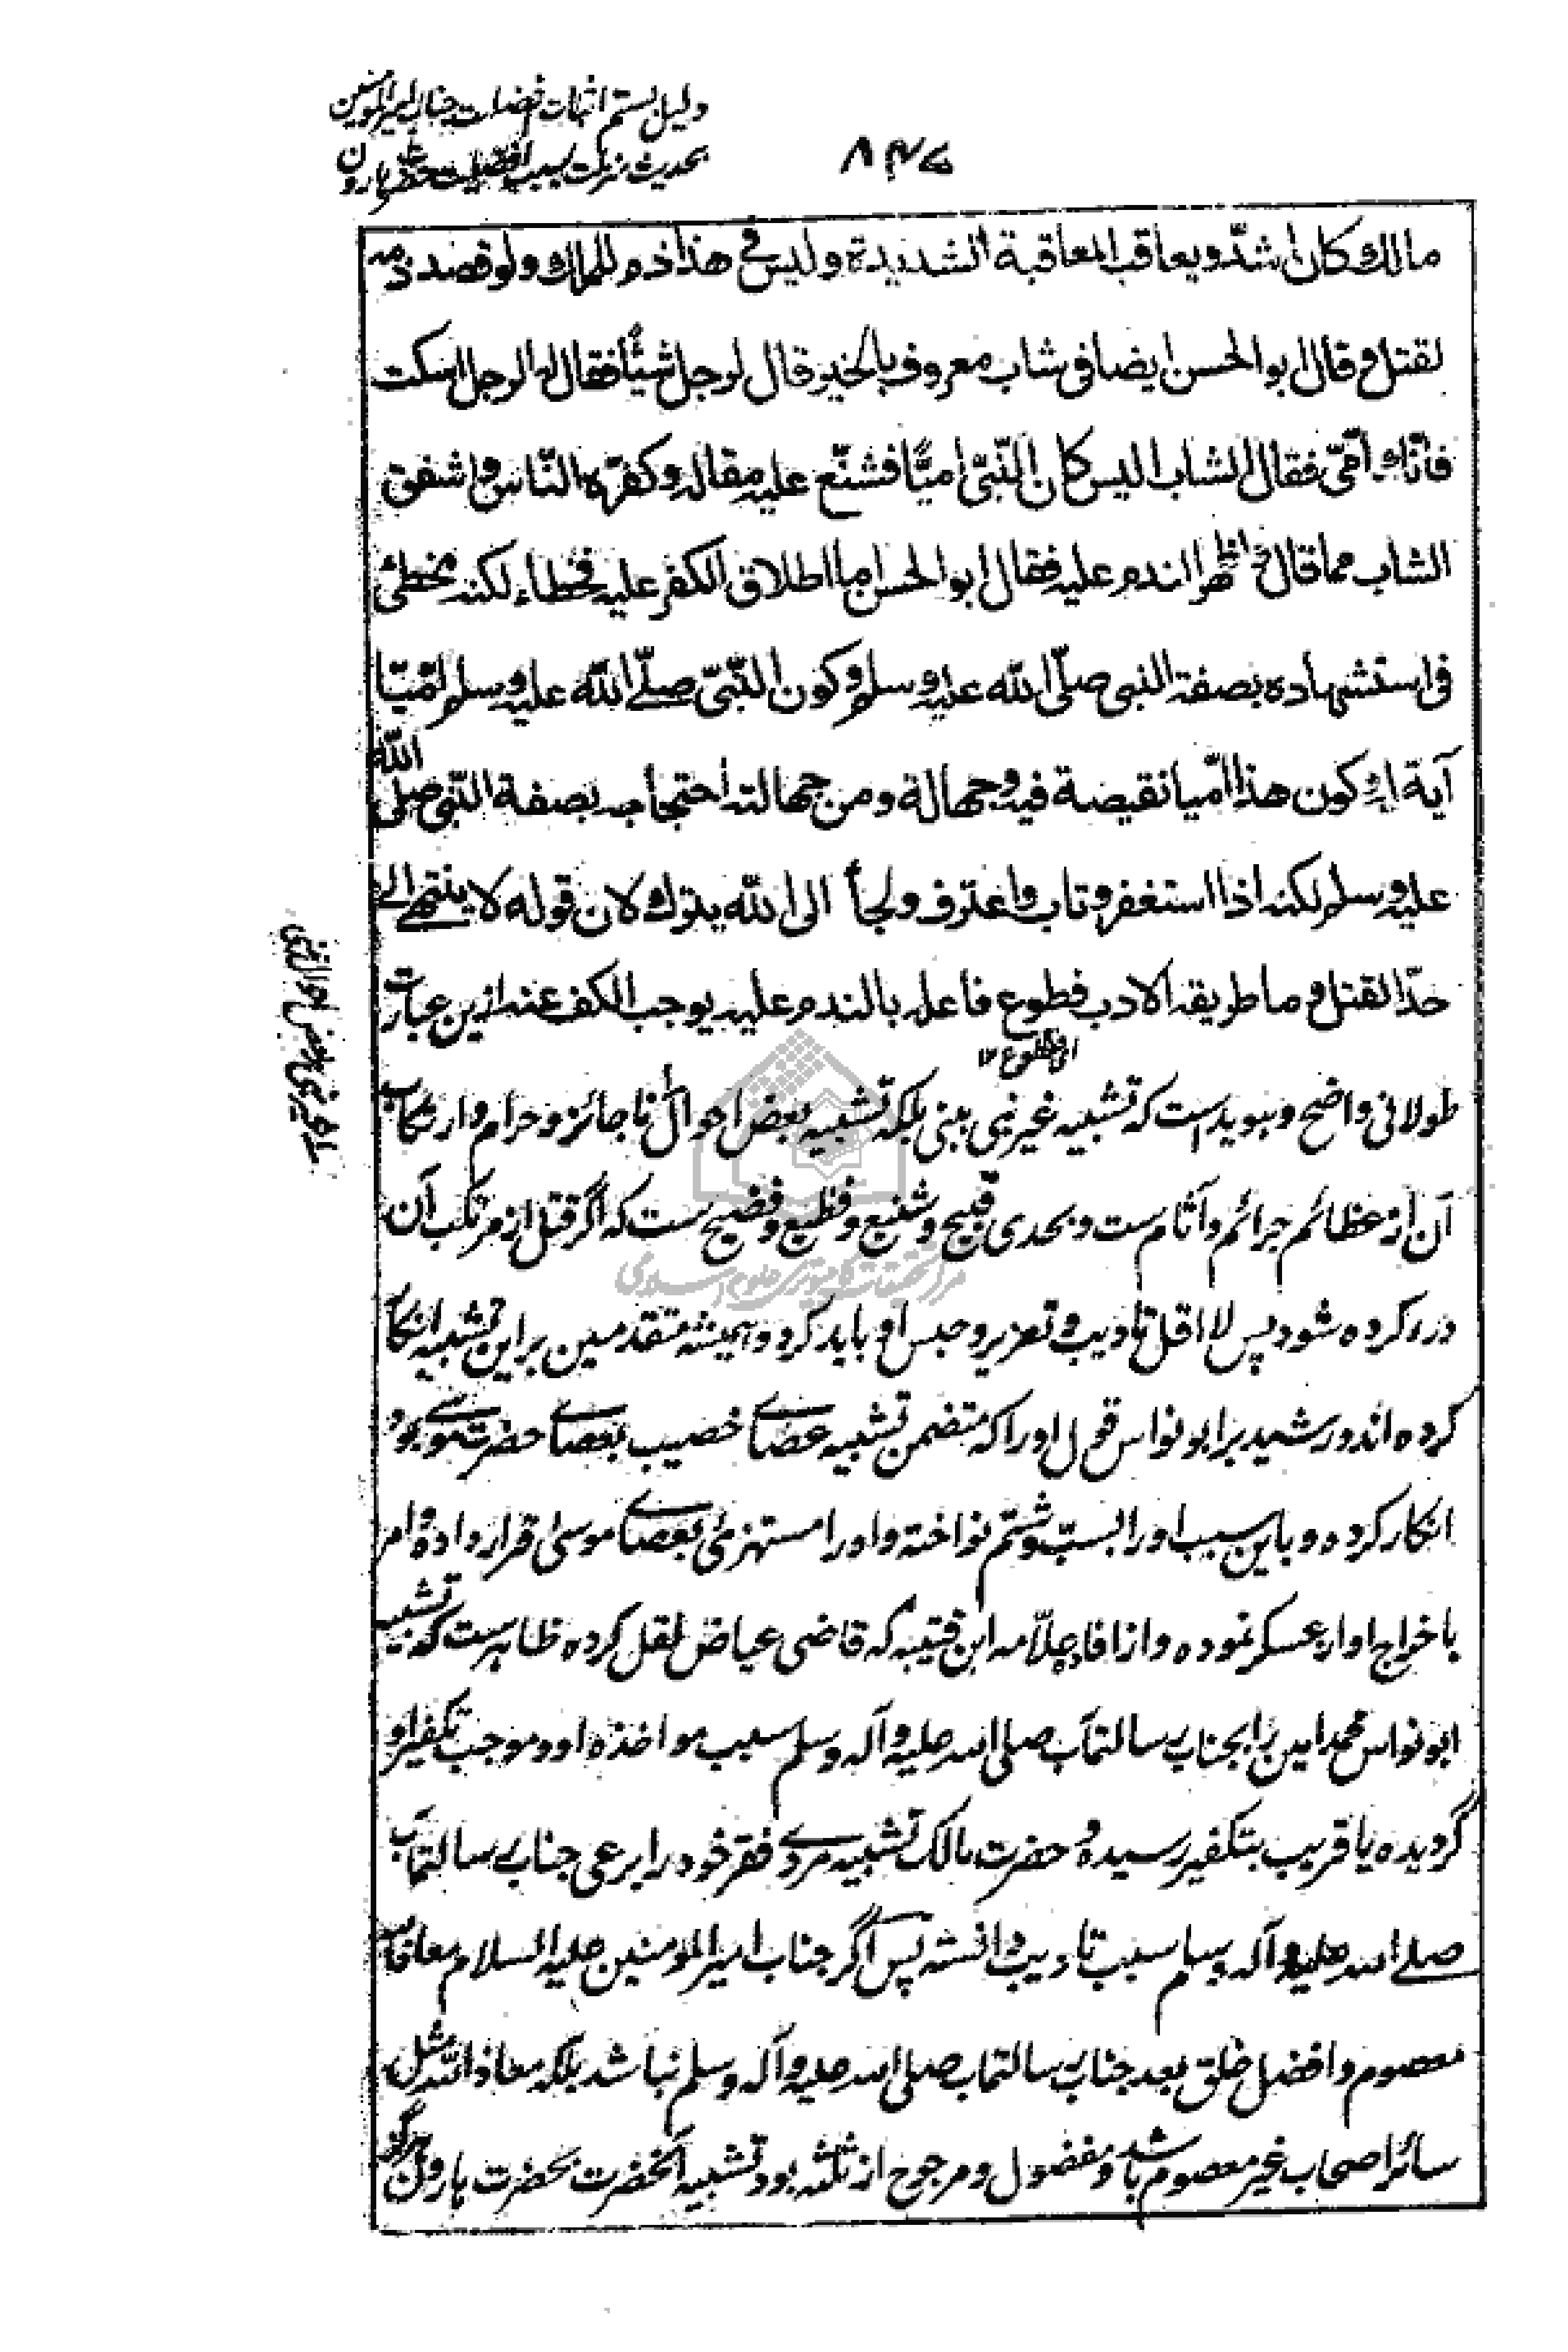 دلیل بستم اثبات افضلیت جناب امیرالمومنین
بحدیث منزلت بسبب افضلیت حضرت هارون
۸۴۷
مالك كان اشدّ ويعاقب المعاقبة الشديدة وليس فى هذا ذم للملك ولو قصد ذمه
لقتل وقال ابو الحسن ايضا فى شاب معروف بالخير قال لرجل شيئًا فقال له الرجل اسكت
فانّك امّى فقال الشاب اليس كان النّبىّ اميًّا فشنّع عليه مقاله وكفّره النّاس واشفق
الشاب مما قال واظهر الندم عليه فقال ابو الحسن اما اطلاق الكفر عليه فخطاء لكنه مخطئ
فى استشهاده بصفة النبى صلّى الله عليه وسلم وكون النّبىّ صلّے الله عليه وسلم امّيّا
آية له وكون هذا امّيا نقيصة فيه وجهالة ومن جهالته احتجاجه بصفة النّبى صلى الله
عليه وسلم لكنه اذا استغفر وتاب واعترف ولجأ الى الله يترك لان قوله لا ينتهے الے
حدّ القتل وما طريقه الادب فطوع فاعله بالندم عليه يوجب الكف عنه ازین عبارت
طولانی واضح و هویداست که تشبیه غیر نبی بنبی بلکه تشبیه بعض احوال ناجائز و حرام و ارتکاب
آن از عظائم جرائم و آثام ست و بحدی قبیح و شنیع و فظیع و فضیح ست که اگر قتل از مرتکب آن
درء کرده شود پس لا اقل تادیب و تعزیر و حبس او باید کرد و همیشه متقدمین بر این تشبیه انکار
کرده اند و رشید بر ابو نواس قول او را که متضمن تشبیه عصاے خصیب بعصاے حضرت موسے بود
انکار کرده و باین سبب او را بسبّ و شتم نواخته و او را مستهزئ بعصاے موسیٰ قرار داده و امر
باخراج او از عسکر نموده و از افاده علّامه ابن قتیبه که قاضی عیاض نقل کرده ظاهرست که تشبیه
ابو نواس محمد امین را بجناب رسالتمآب صلی الله علیه و آله وسلم سبب مواخذه او و موجب تکفیر او
گردیده یا قریب بتکفیر رسیده و حضرت مالک تشبیه مردے فقر خود را برعی جناب رسالتمآب
صلے الله علیه و آله وسلم سبب تادیب دانسته پس اگر جناب امیر المومنین علیه السلام معاذ الله
معصوم و افضل خلق بعد جناب رسالتمآب صلی الله علیه و آله وسلم نباشد بلکه معاذ الله مثل
سائر اصحاب غیر معصوم باشد و مفضول و مرجوح از ثلثه بود تشبیه آنحضرت بحضرت هارون هرگز
مرکز تحقیقات کامپیوتری علوم اسلامی